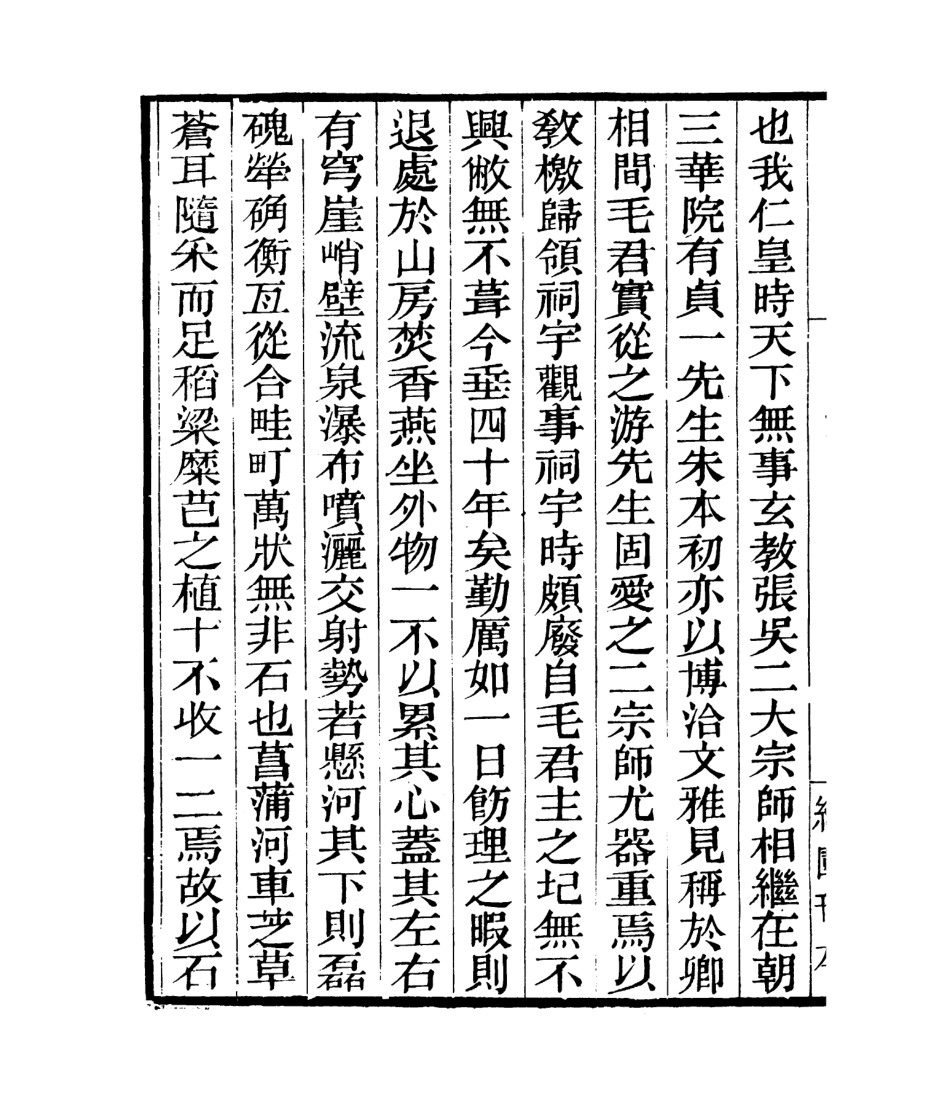 也我仁皇時天下無事玄教張吳二大宗師相繼在朝
三華院有貞一先生朱本初亦以博洽文雅見稱於卿
相間毛君實從之游先生固愛之二宗師尤器重焉以
教檄歸領祠宇觀事祠宇時頗廢自毛君主之圮無不
興敝無不葺今垂四十年矣勤厲如一日飭理之暇則
退處於山房焚香燕坐外物一不以累其心蓋其左右
有穹崖峭壁流泉瀑布噴灑交射勢若懸河其下則磊
磈犖确衡亙從合畦町萬狀無非石也菖蒲河車芝草
蒼耳隨采而足稻粱穈芑之植十不收一二焉故以石